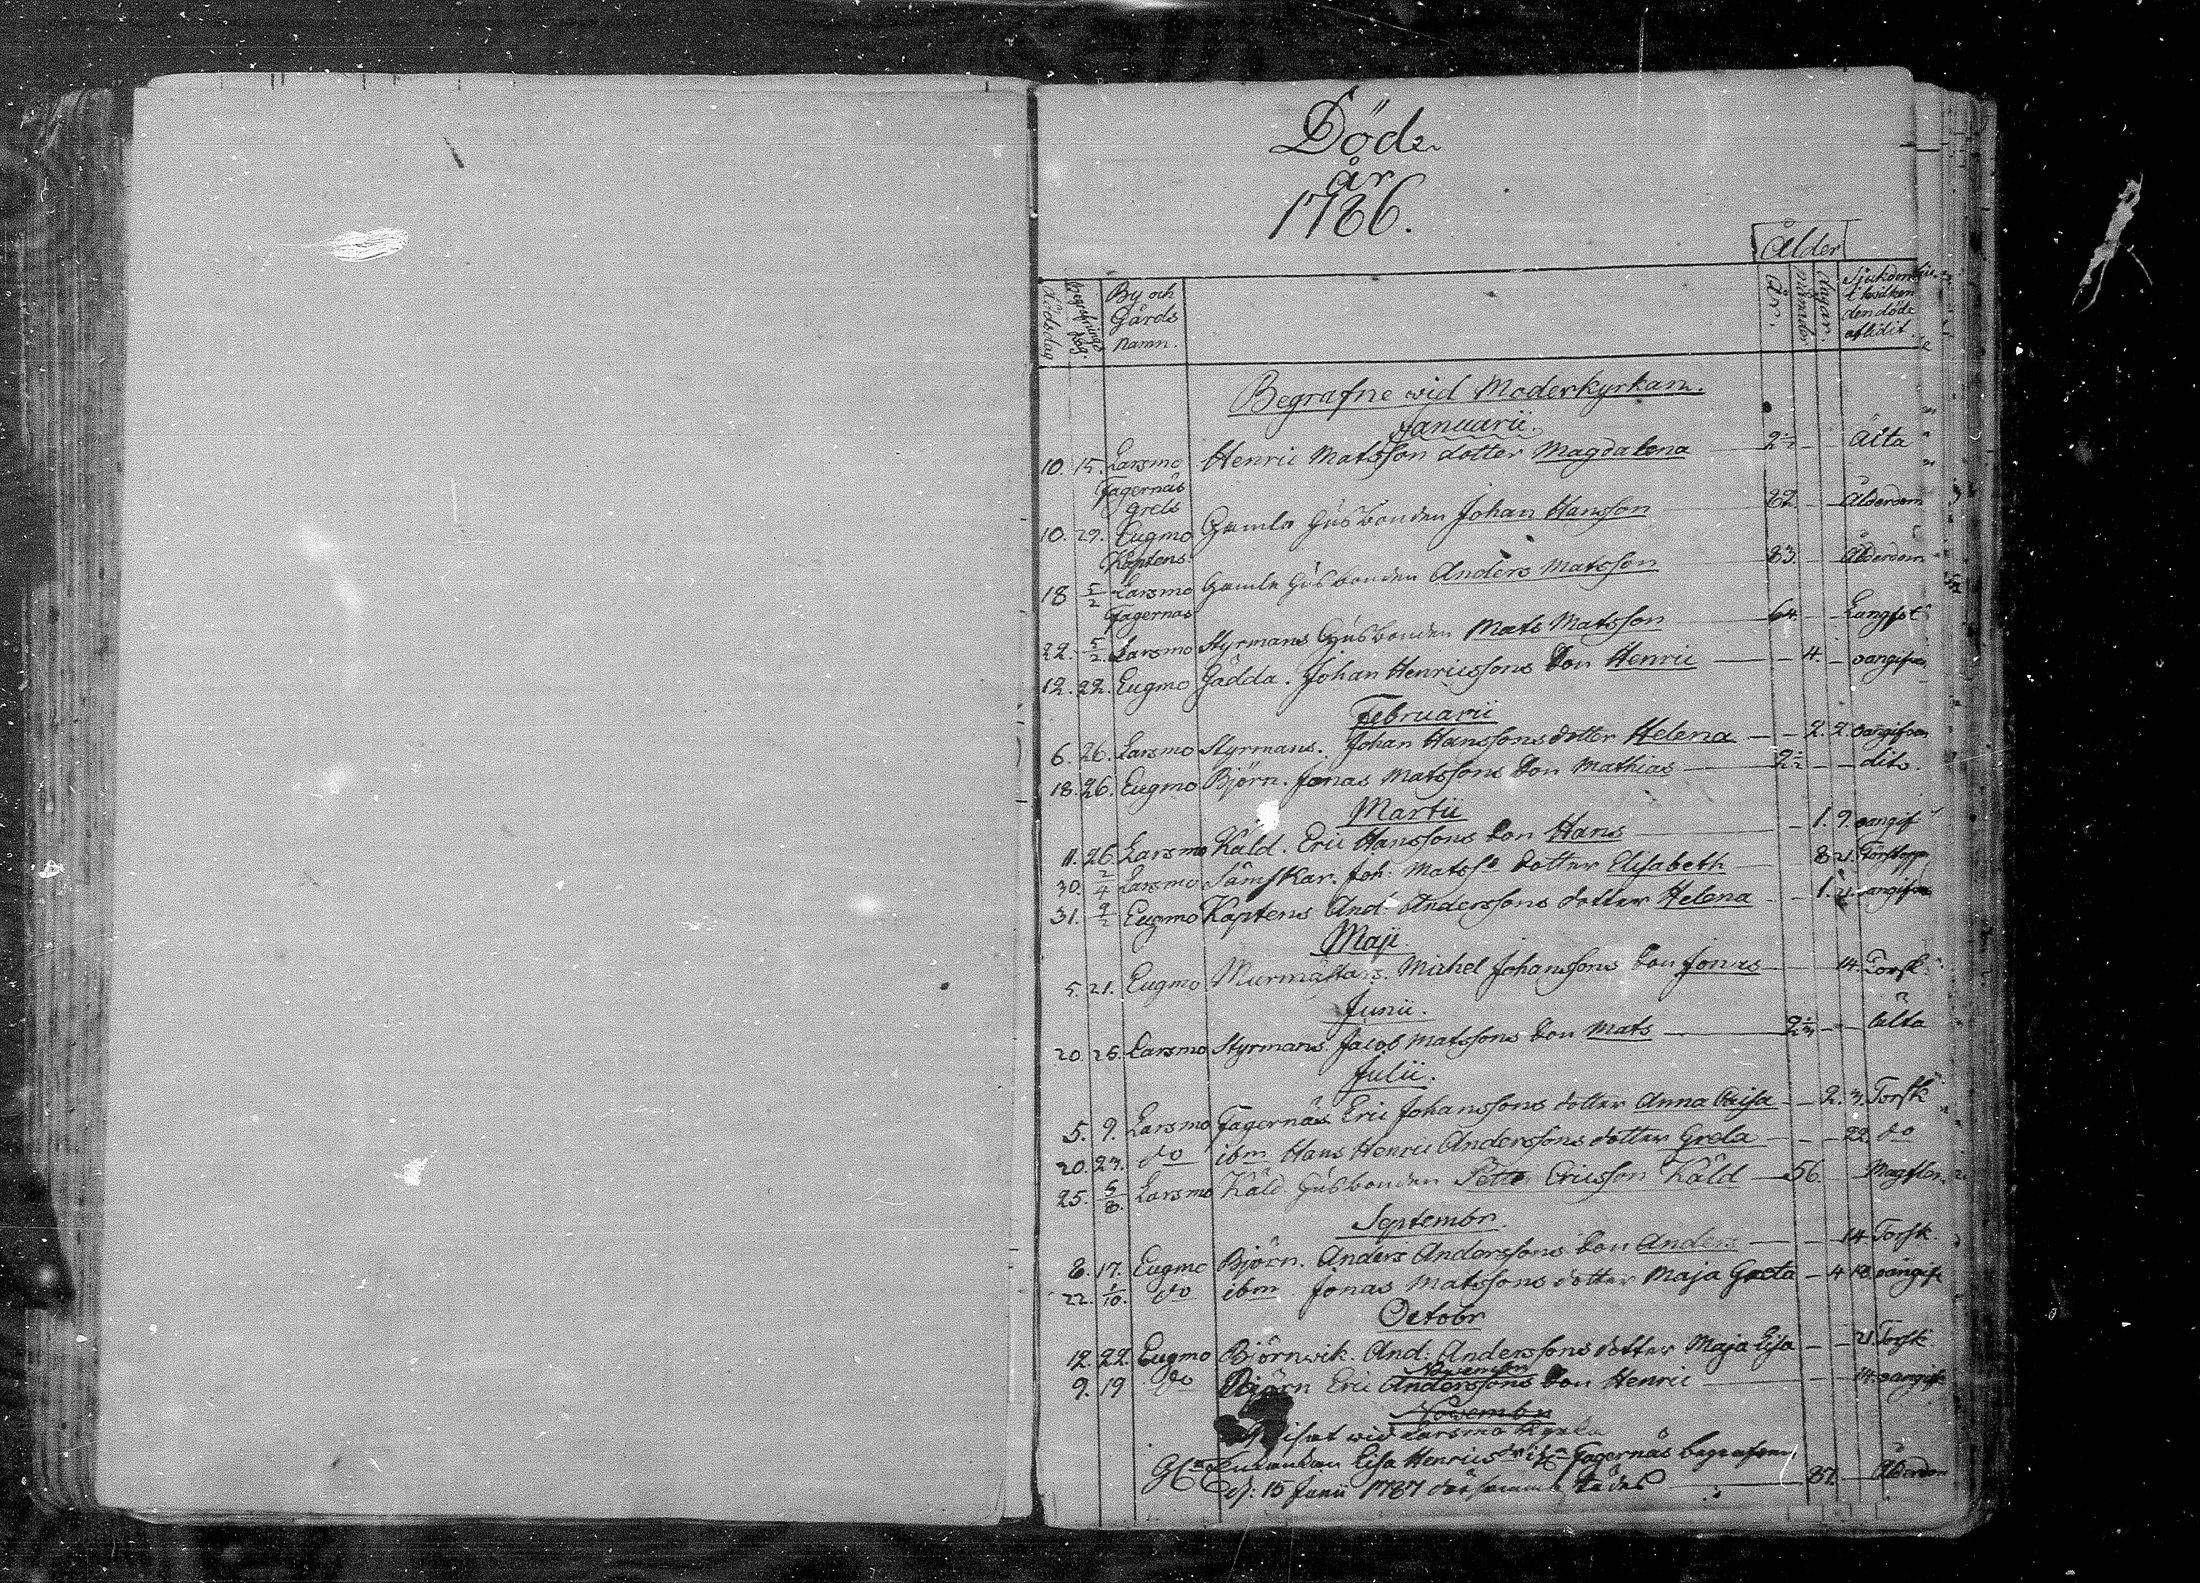 Döde
år
1786.
Ålder
Dödsdag Begrafnings dag By och Gårds namn. År. Månader Dagar. Sjukdom i hvilken den döde aflidit.
Begrafne wid Moderkyrkan.
Januarii.
10. 15. Larsmo Henric Matsson dotter Magdalena 2½ Ålta
Fagernäs
grels
10. 29. Eugmo Gamle Husbonden Johan Hansson 82. Ålderdom
Kaptens
18 5/2 Larsmo Gamle Husbonden Anders Matsson 83. Ålderdom
Fagernäs
22. 5/2. Larsmo Styrmans Husbonden Mats Matsson 64. Langsot
12. 22. Eugmo Gädda. Johan Henricssons Son Henric 4. oangifven
Februarii
6. 26. Larsmo Styrmans. Johan Hanssons dotter Helena 2. 2. oangifven
18. 26. Eugmo Björn. Jonas Matssons Son Mathias 2½ dito.
Martii
11. 26. Larsmo Käld. Eric Hanssons Son Hans 1. 9. oangif
30. 2/4 Larsmo Sämskar. Joh: Matss. dotter Elisabeth 8 21.
31. 9/2 Eugmo Kaptens And. Anderssons dotter Helena 1. 21. oangifven
Maji.
5. 21. Eugmo Murmästars. Michel Johanssons Son Jonas 14. Torsk.
Junii.
20. 25. Larsmo Styrmans. Jacob Matssons Son Mats Ålta
Julii.
5. 9. Larsmo Fagernäs. Eric Johanssons dotter Anna Caisa 2. 3. Torsk
20. 23. do ibm Hans Henric Anderssons dotter Greta 22. do
25. 5/8. Larsmo Käld Husbonden Petter Ericsson Käld 56.
Septembr.
8. 17. Eugmo Björn. Anders Anderssons Son Anders 14 Torsk.
22. 1/10. do ibm. Jonas Matssons dotter Maja Greta 4 18. oangif
Octobr
12. 22. Eugmo Björnwik. And: Anderssons dotter Maja Lisa 21. Torsk
Novembr
9. 19 do Björn Eric Anderssons Son Henric 14. oangif
Novembr
wid Larsmo
Enkan Lisa Henricsdr ifrn Fagernäs begrafven
d: 15 Junii 1787 därsammastädes 87. Ålderdom